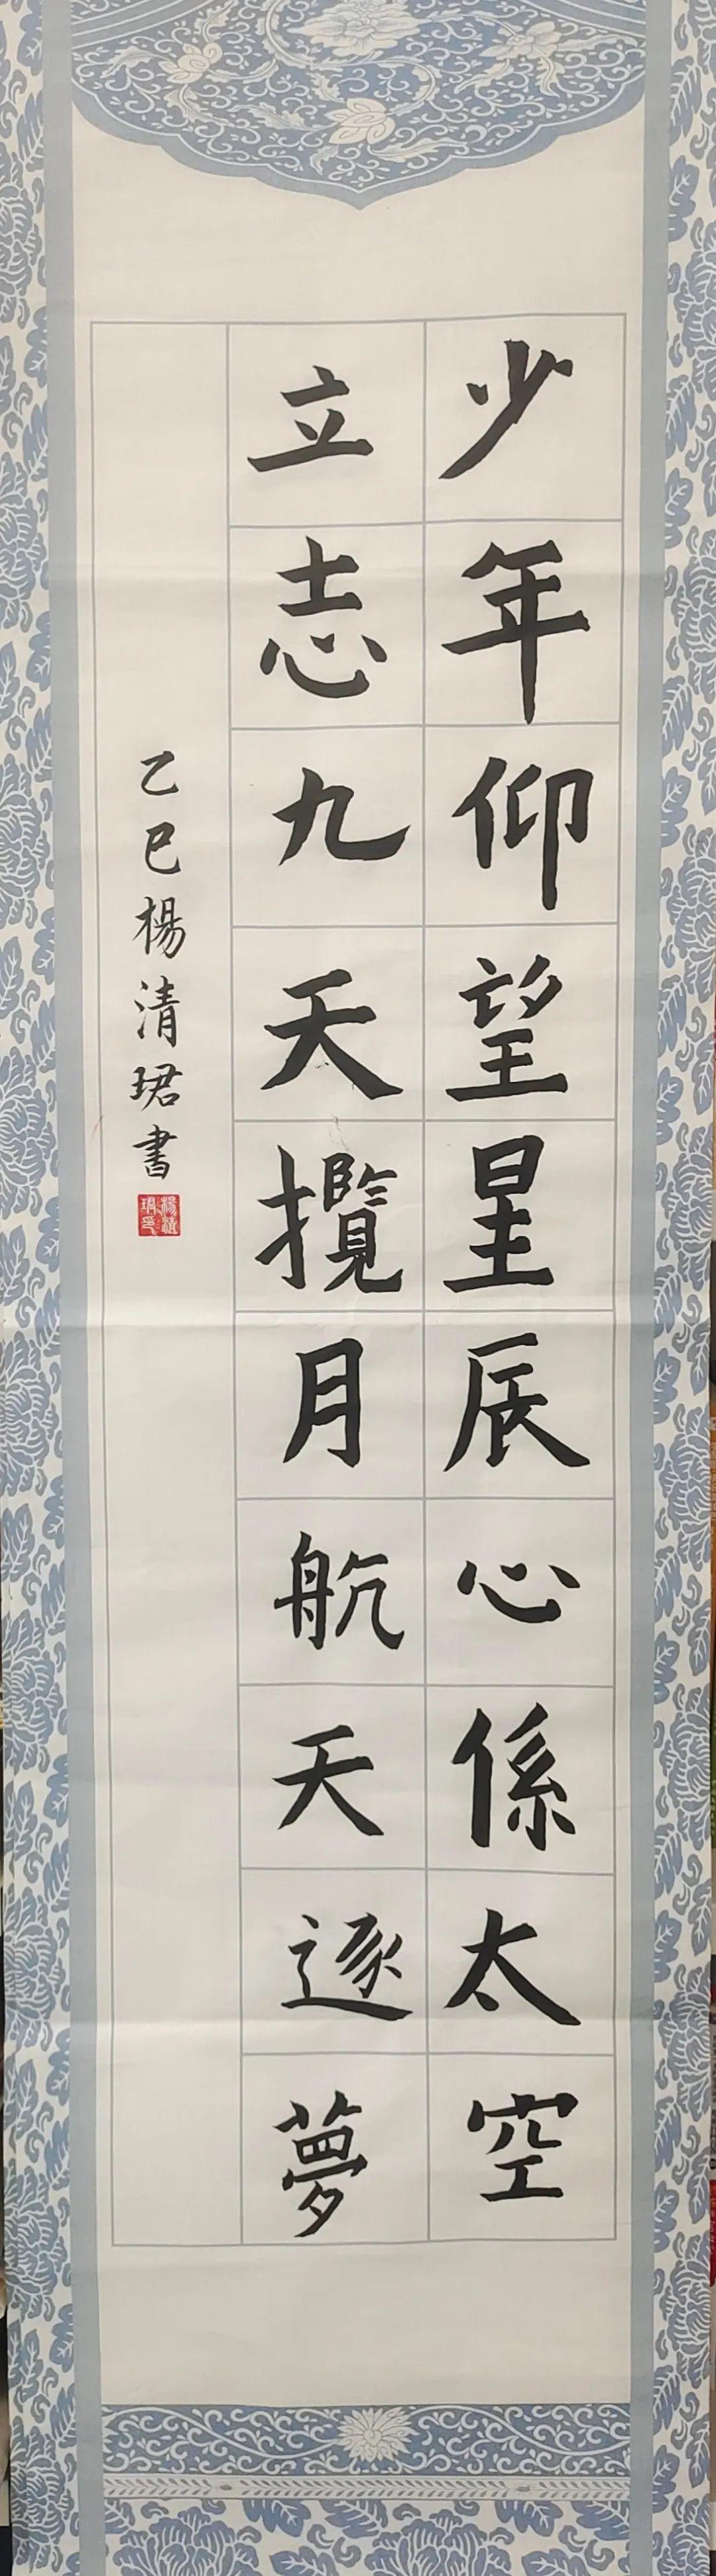 少年仰望星辰心係太空
立志九天攬月航天逐夢
乙巳楊清珺書
楊清珺印